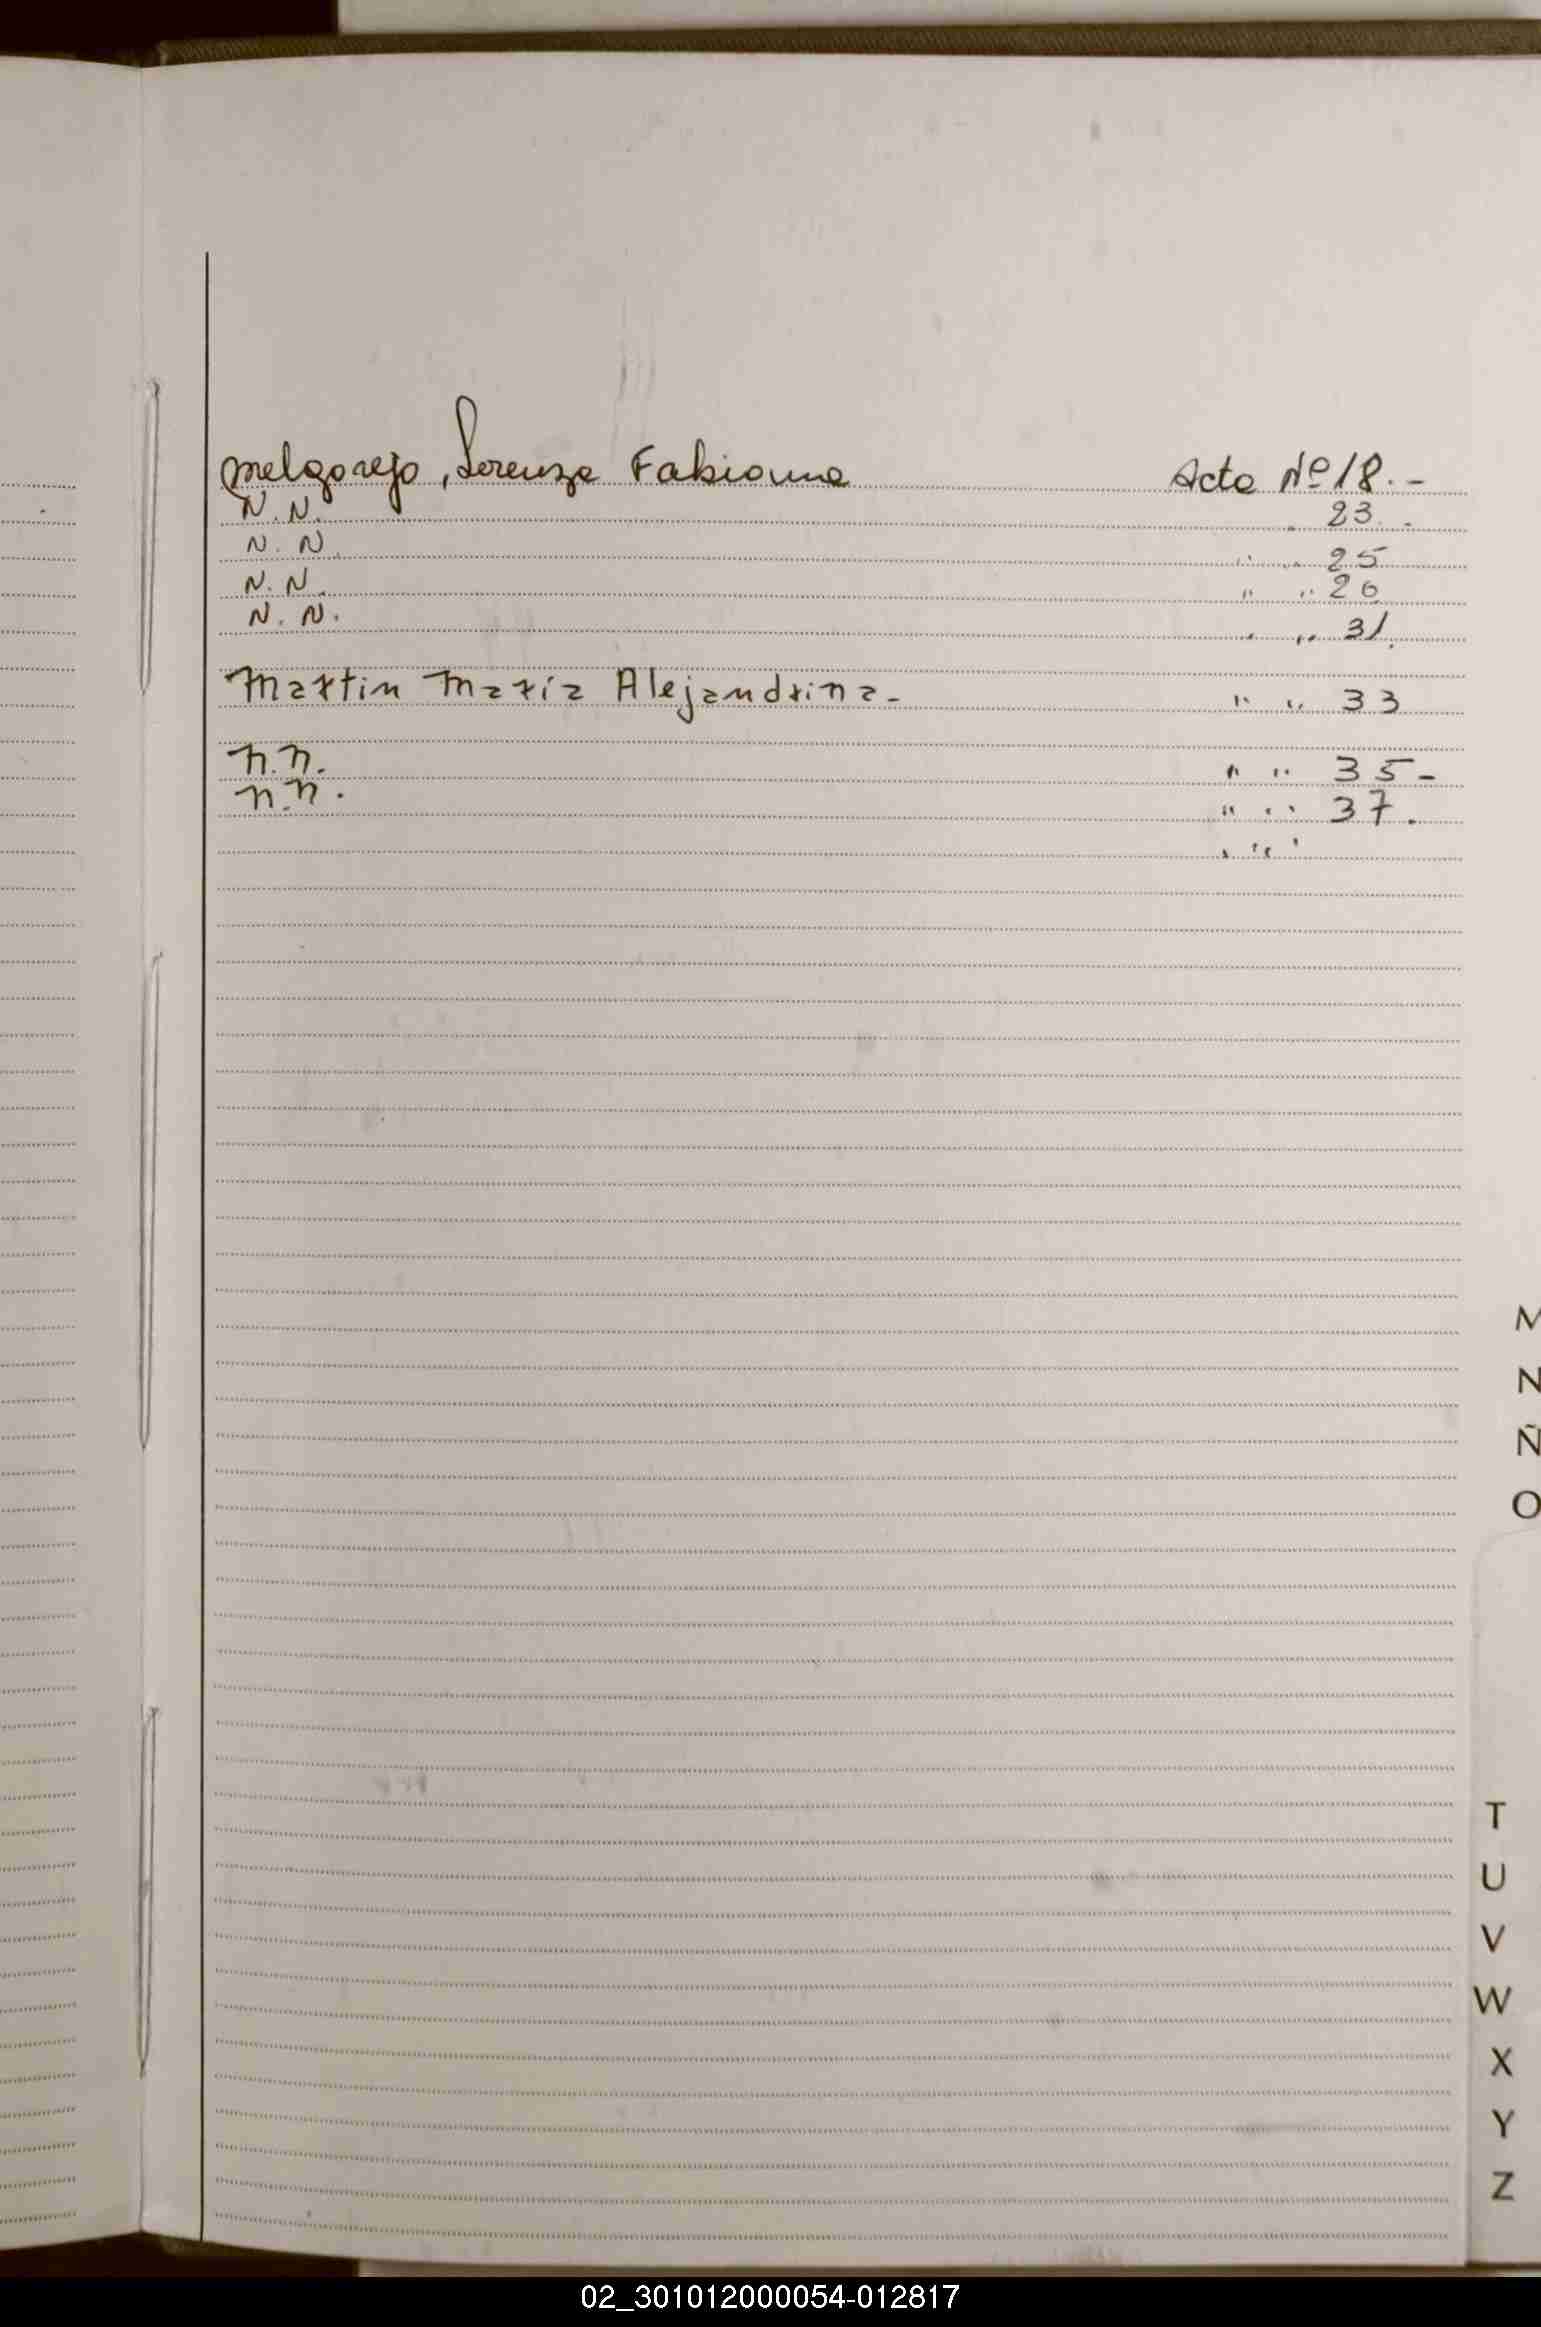 Melgarejo, Lorenza Fabiana Acta Nº 18.-
N. N. " 23.-
N. N. " " 25
N. N. " " 26
N. N. " " 31.
Martin María Alejandrina- " " 33
N.N. " " 35-
N.N. " " 37.
" "
M
N
Ñ
O
T
U
V
W
X
Y
Z
02_301012000054-012817